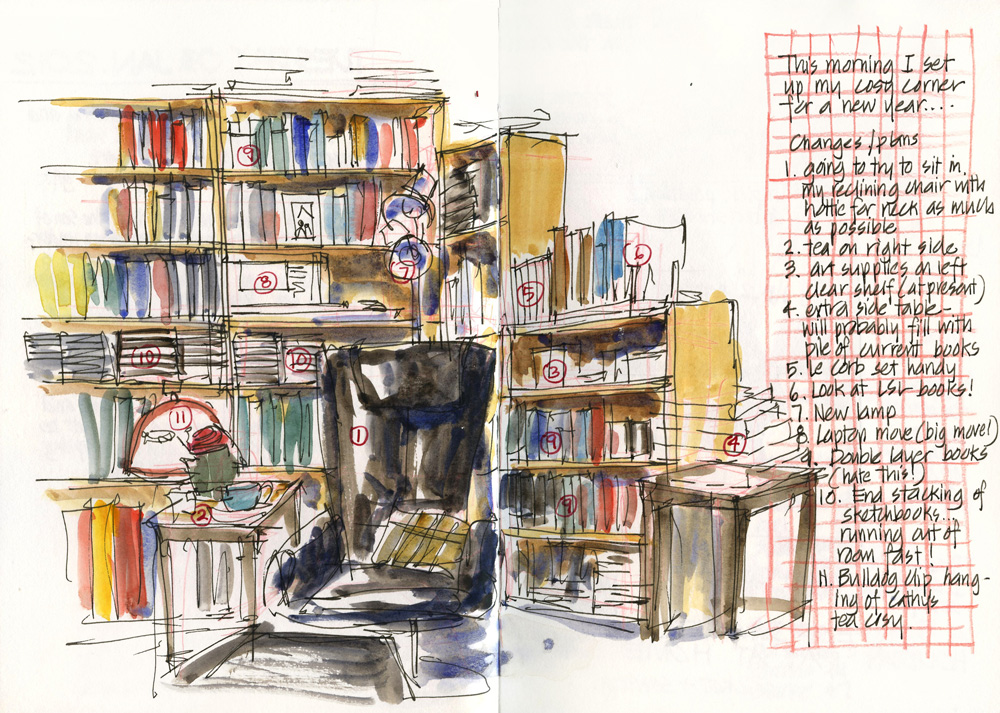 This morning I set
up my cosy corner
for a new year....
Changes/plans
1. going to try to sit in
my reclining chair with
hottie for neck as much
as possible
2. tea on right side
3. art supplies on left
clear shelf (at present)
4. extra side table -
will probably fill with
pile of current books
5. le corb set handy
6. Look at LSL books!
7. New lamp
8. Laptop move (big move!)
9. Double layer books
(hate this!)
10. End stacking of
sketchbooks...
running out of
room fast!
11. Bulldog clip hang-
ing of Cathys
tea cosy.
9
7
8
6
5
10
10
13
11
1
9
4
2
9